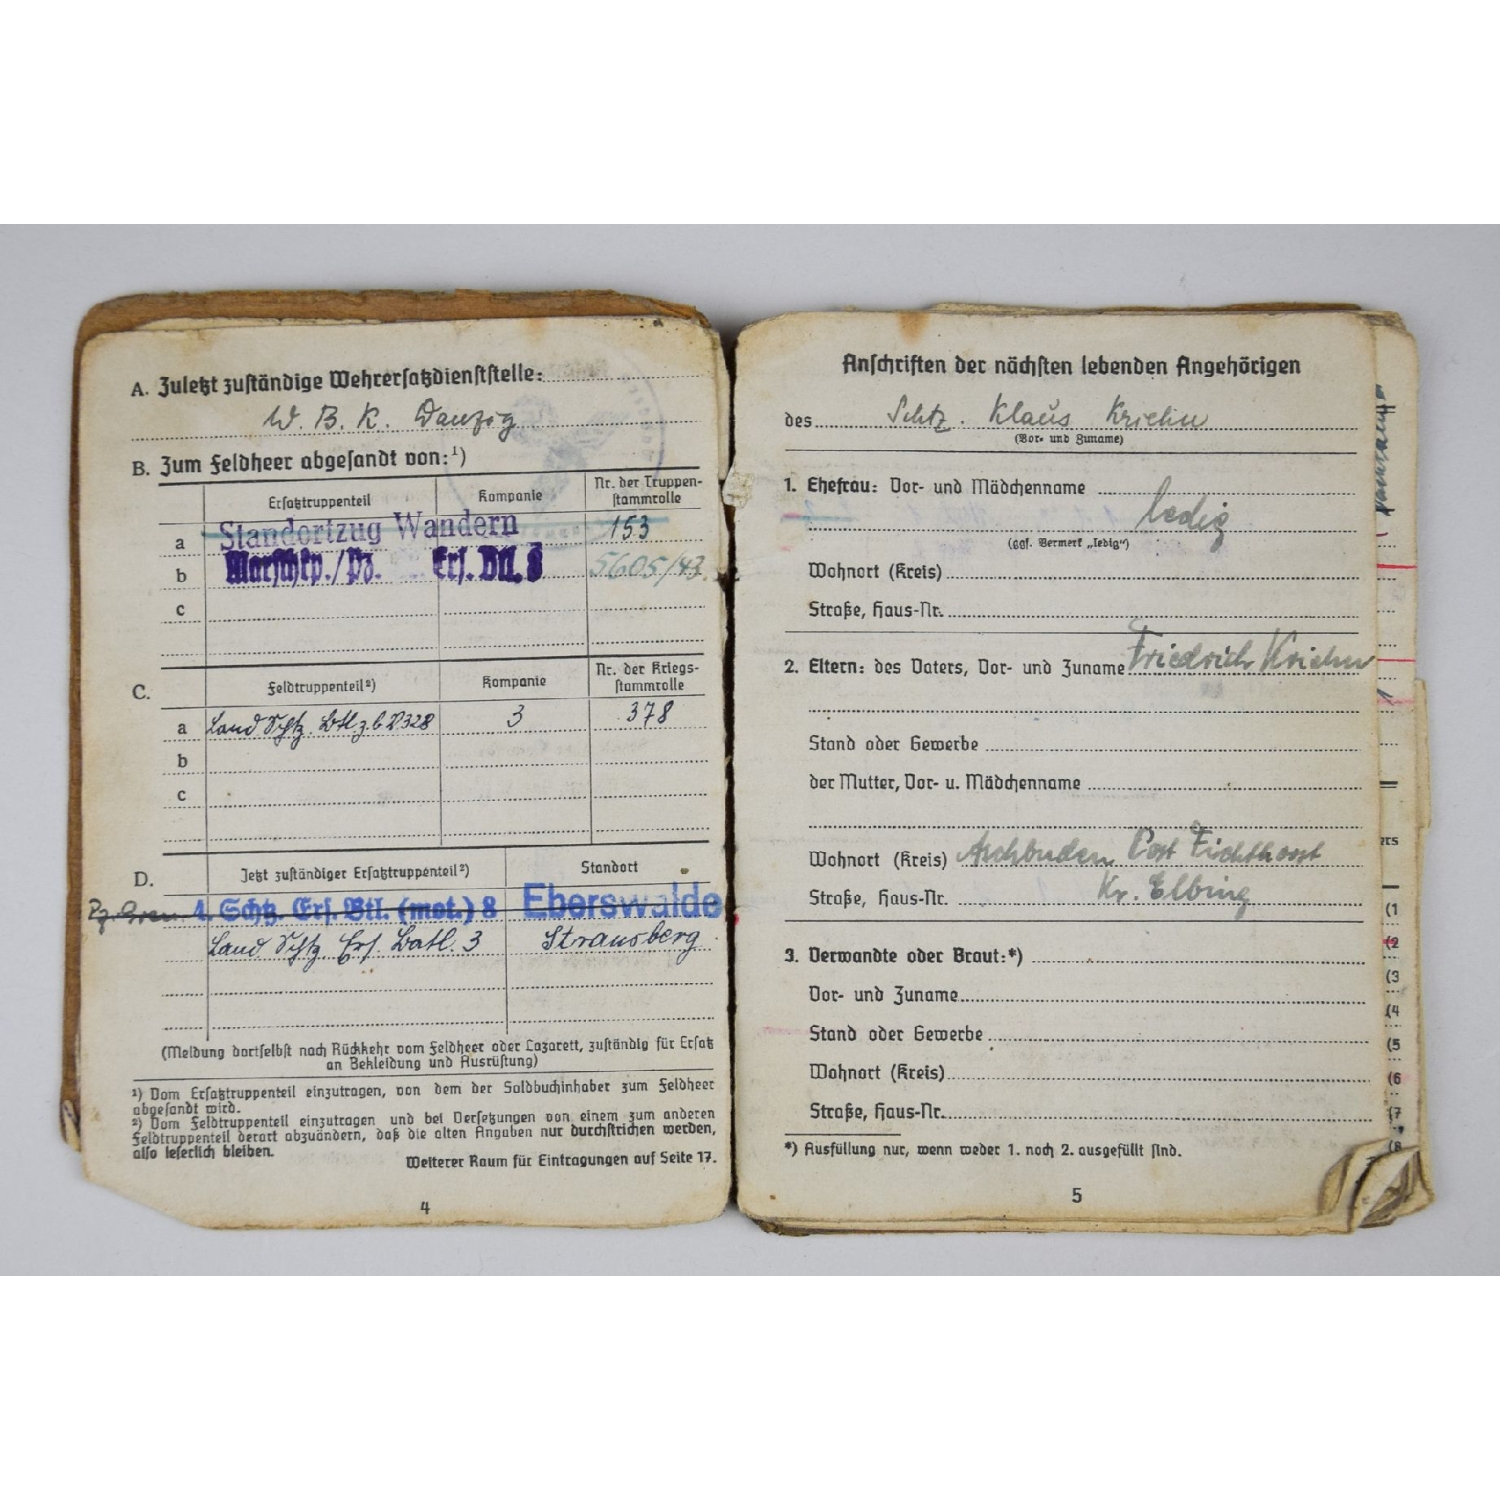 A. Zuletzt zuständige Wehrersatzdienststelle:
W. B. K. Danzig
B. Zum Feldheer abgesandt von:¹)
Ersatztruppenteil Kompanie Nr. der Truppen-
stammrolle
a Standortzug Wandern 153
b Marschkp./Pz. Ers. Btl. 8 5605/43.
c
C. Feldtruppenteil²) Kompanie Nr. der Kriegs-
stammrolle
a Land Schtz. Btl. z.b.V 328 3 378
b
c
D. Jetzt zuständiger Ersatztruppenteil²) Standort
Pz. Gren. 4. Schtz. Ers. Btl. (mot.) 8 Eberswalde
Land Schtz. Ers. Batl. 3 Strausberg
(Meldung dortselbst nach Rückkehr vom Feldheer oder Lazarett, zuständig für Ersatz
an Bekleidung und Ausrüstung)
¹) Vom Ersatztruppenteil einzutragen, von dem der Soldbuchinhaber zum Feldheer
abgesandt wird.
²) Vom Feldtruppenteil einzutragen und bei Versetzungen von einem zum anderen
Feldtruppenteil derart abzuändern, daß die alten Angaben nur durchstrichen werden,
also leserlich bleiben.
Weiterer Raum für Eintragungen auf Seite 17.
4
Anschriften der nächsten lebenden Angehörigen
des Schtz. Klaus Kriehn
(Vor- und Zuname)
1. Ehefrau: Vor- und Mädchenname
ledig
(ggf. Vermerk „ledig“)
Wohnort (Kreis)
Straße, Haus-Nr.
2. Eltern: des Vaters, Vor- und Zuname Friedrich Kriehn
Stand oder Gewerbe
der Mutter, Vor- u. Mädchenname
Wohnort (Kreis) Aschbuden Post Fichthorst
Straße, Haus-Nr. Kr. Elbing
3. Verwandte oder Braut:*)
Vor- und Zuname
Stand oder Gewerbe
Wohnort (Kreis)
Straße, Haus-Nr.
*) Ausfüllung nur, wenn weder 1. noch 2. ausgefüllt sind.
5
ers
(1
(2
(3
(4
(5
(6
(7
(8